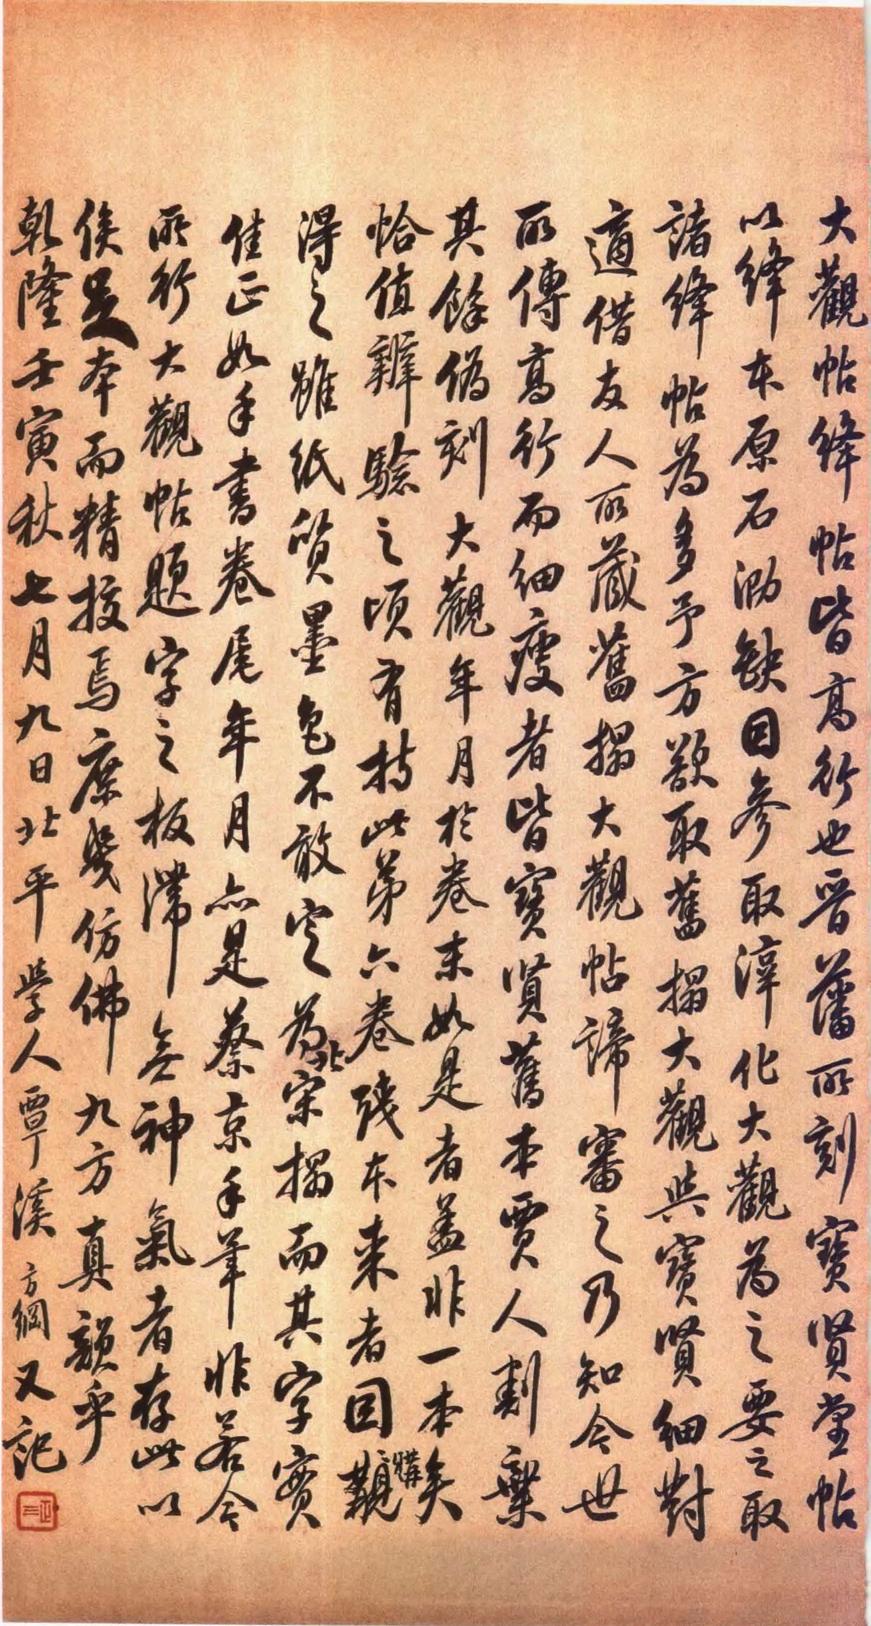 大觀帖絳帖皆高行也晉藩所刻寶賢堂帖
以絳本原石泐缺因參取淳化大觀為之要之取
諸絳帖為多予方欲取舊搨大觀與寶賢細對
適借友人所藏舊搨大觀帖諦審之乃知今世
所傳高行而細瘦者皆寶賢舊本賈人割棄
其餘偽刻大觀年月於卷末如是者蓋非一本矣
恰值辨驗之頃有持此第六卷殘本来者因觀購
得之雖紙質墨色不敢定為北宋搨而其字實
佳正如手書卷尾年月亦是蔡京手筆非若今
所行大觀帖題字之板滯無神氣者存此以
俟足本而精挍焉庶幾仿佛九方真韻乎
乾隆壬寅秋七月九日北平學人覃溪方綱又記